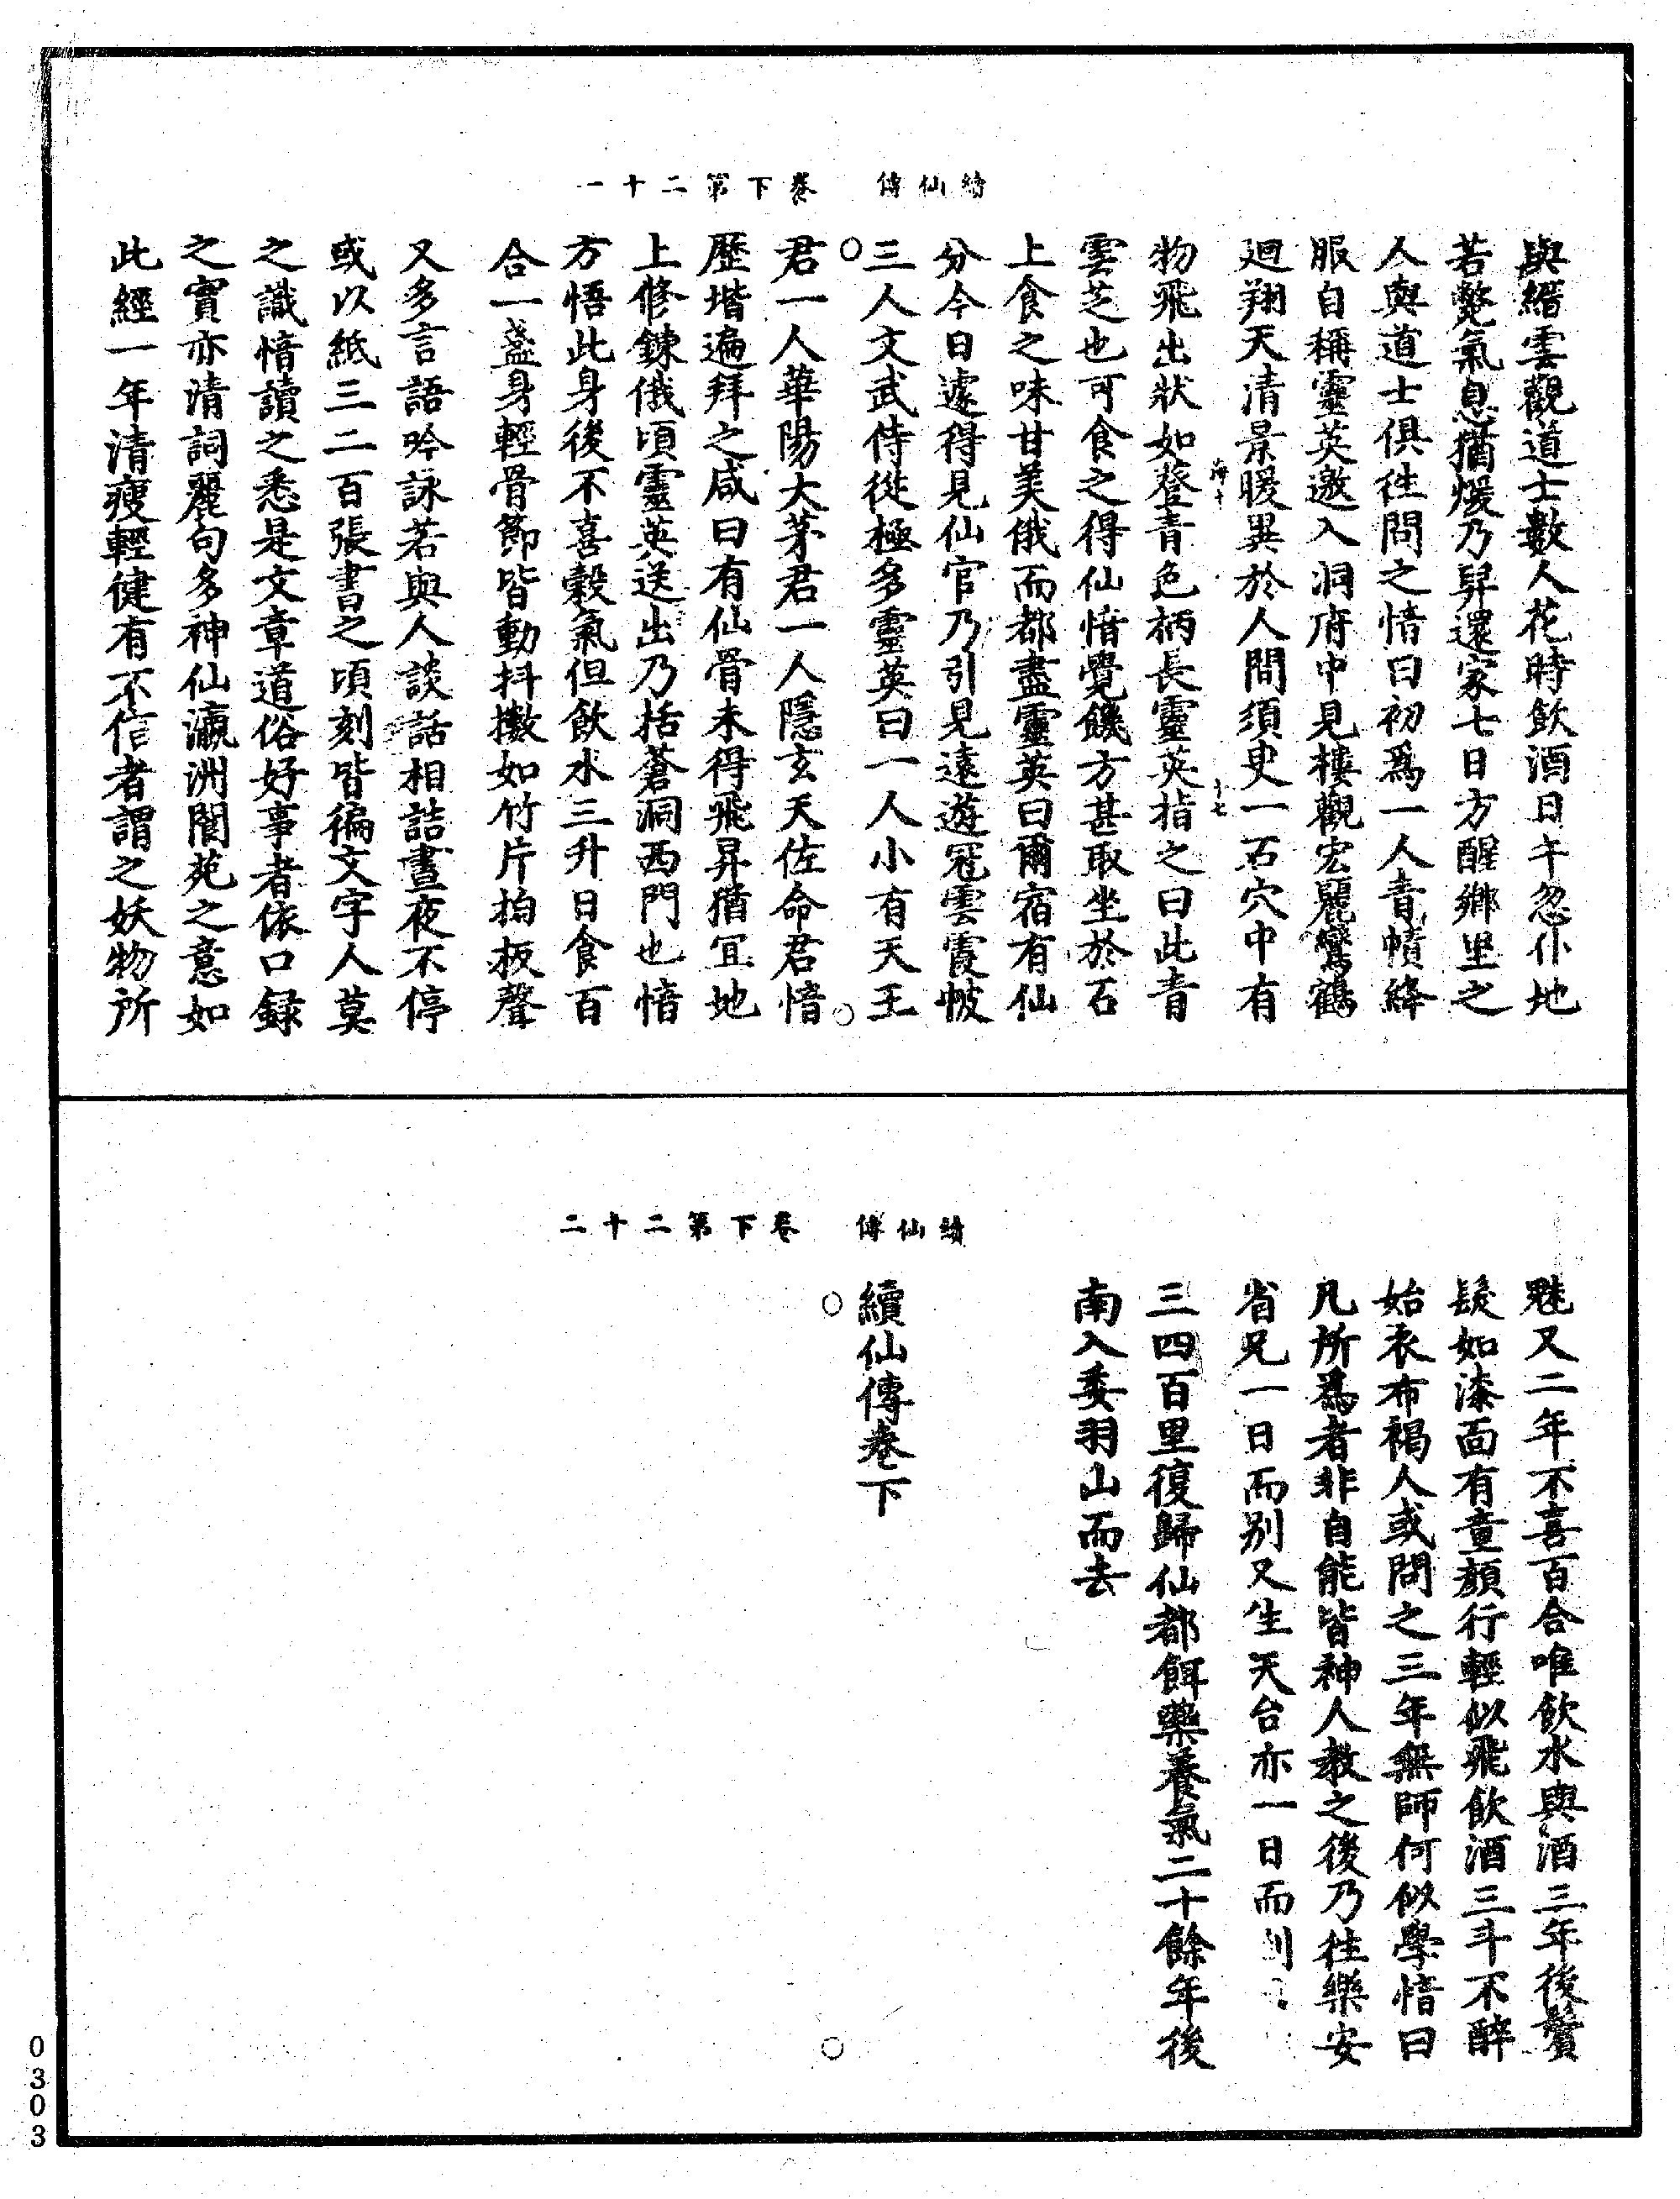 續仙傳　卷下第二十一
與縉雲觀道士數人花時飲酒日午忽仆地
若斃氣息猶煖乃舁還家七日方醒鄉里之
人與道士俱徃問之愔曰初爲一人青幘絳
服自稱靈英邀入洞府中見樓觀宏麗鸞鶴
廻翔天清景暖異於人間須臾一石穴中有
海十
十七
物飛出狀如登青色柄長靈英指之曰此青
雲芝也可食之得仙愔覺饑方甚取坐於石
上食之味甘美俄而都盡靈英曰爾宿有仙
分今日遽得見仙官乃引見遠遊冠雲霞帔
三人文武侍從極多靈英曰一人小有天王
君一人華陽大茅君一人隱玄天佐命君愔
歷堦遍拜之咸曰有仙骨未得飛昇猶冝地
上修鍊俄頃靈英送出乃括蒼洞西門也愔
方悟此身後不喜穀氣但飲水三升日食百
合一盞身輕骨節皆動抖擻如竹片拍板聲
又多言語吟詠若與人談話相詰晝夜不停
或以紙三二百張書之頃刻皆徧文字人莫
之識愔讀之悉是文章道俗好事者依口録
之實亦清詞麗句多神仙瀛洲閬苑之意如
此經一年清瘦輕健有不信者謂之妖物所
續仙傳　卷下第二十二
魅又二年不喜百合唯飲水與酒三年後鬢
髮如漆面有童顏行輕似飛飲酒三斗不醉
始衣布褐人或問之三年無師何似學愔曰
凡所爲者非自能皆神人教之後乃徃樂安
省兄一日而别又生天台亦一日而别
三四百里復歸仙都餌藥養氣二十餘年後
南入委羽山而去
續仙傳卷下
0303